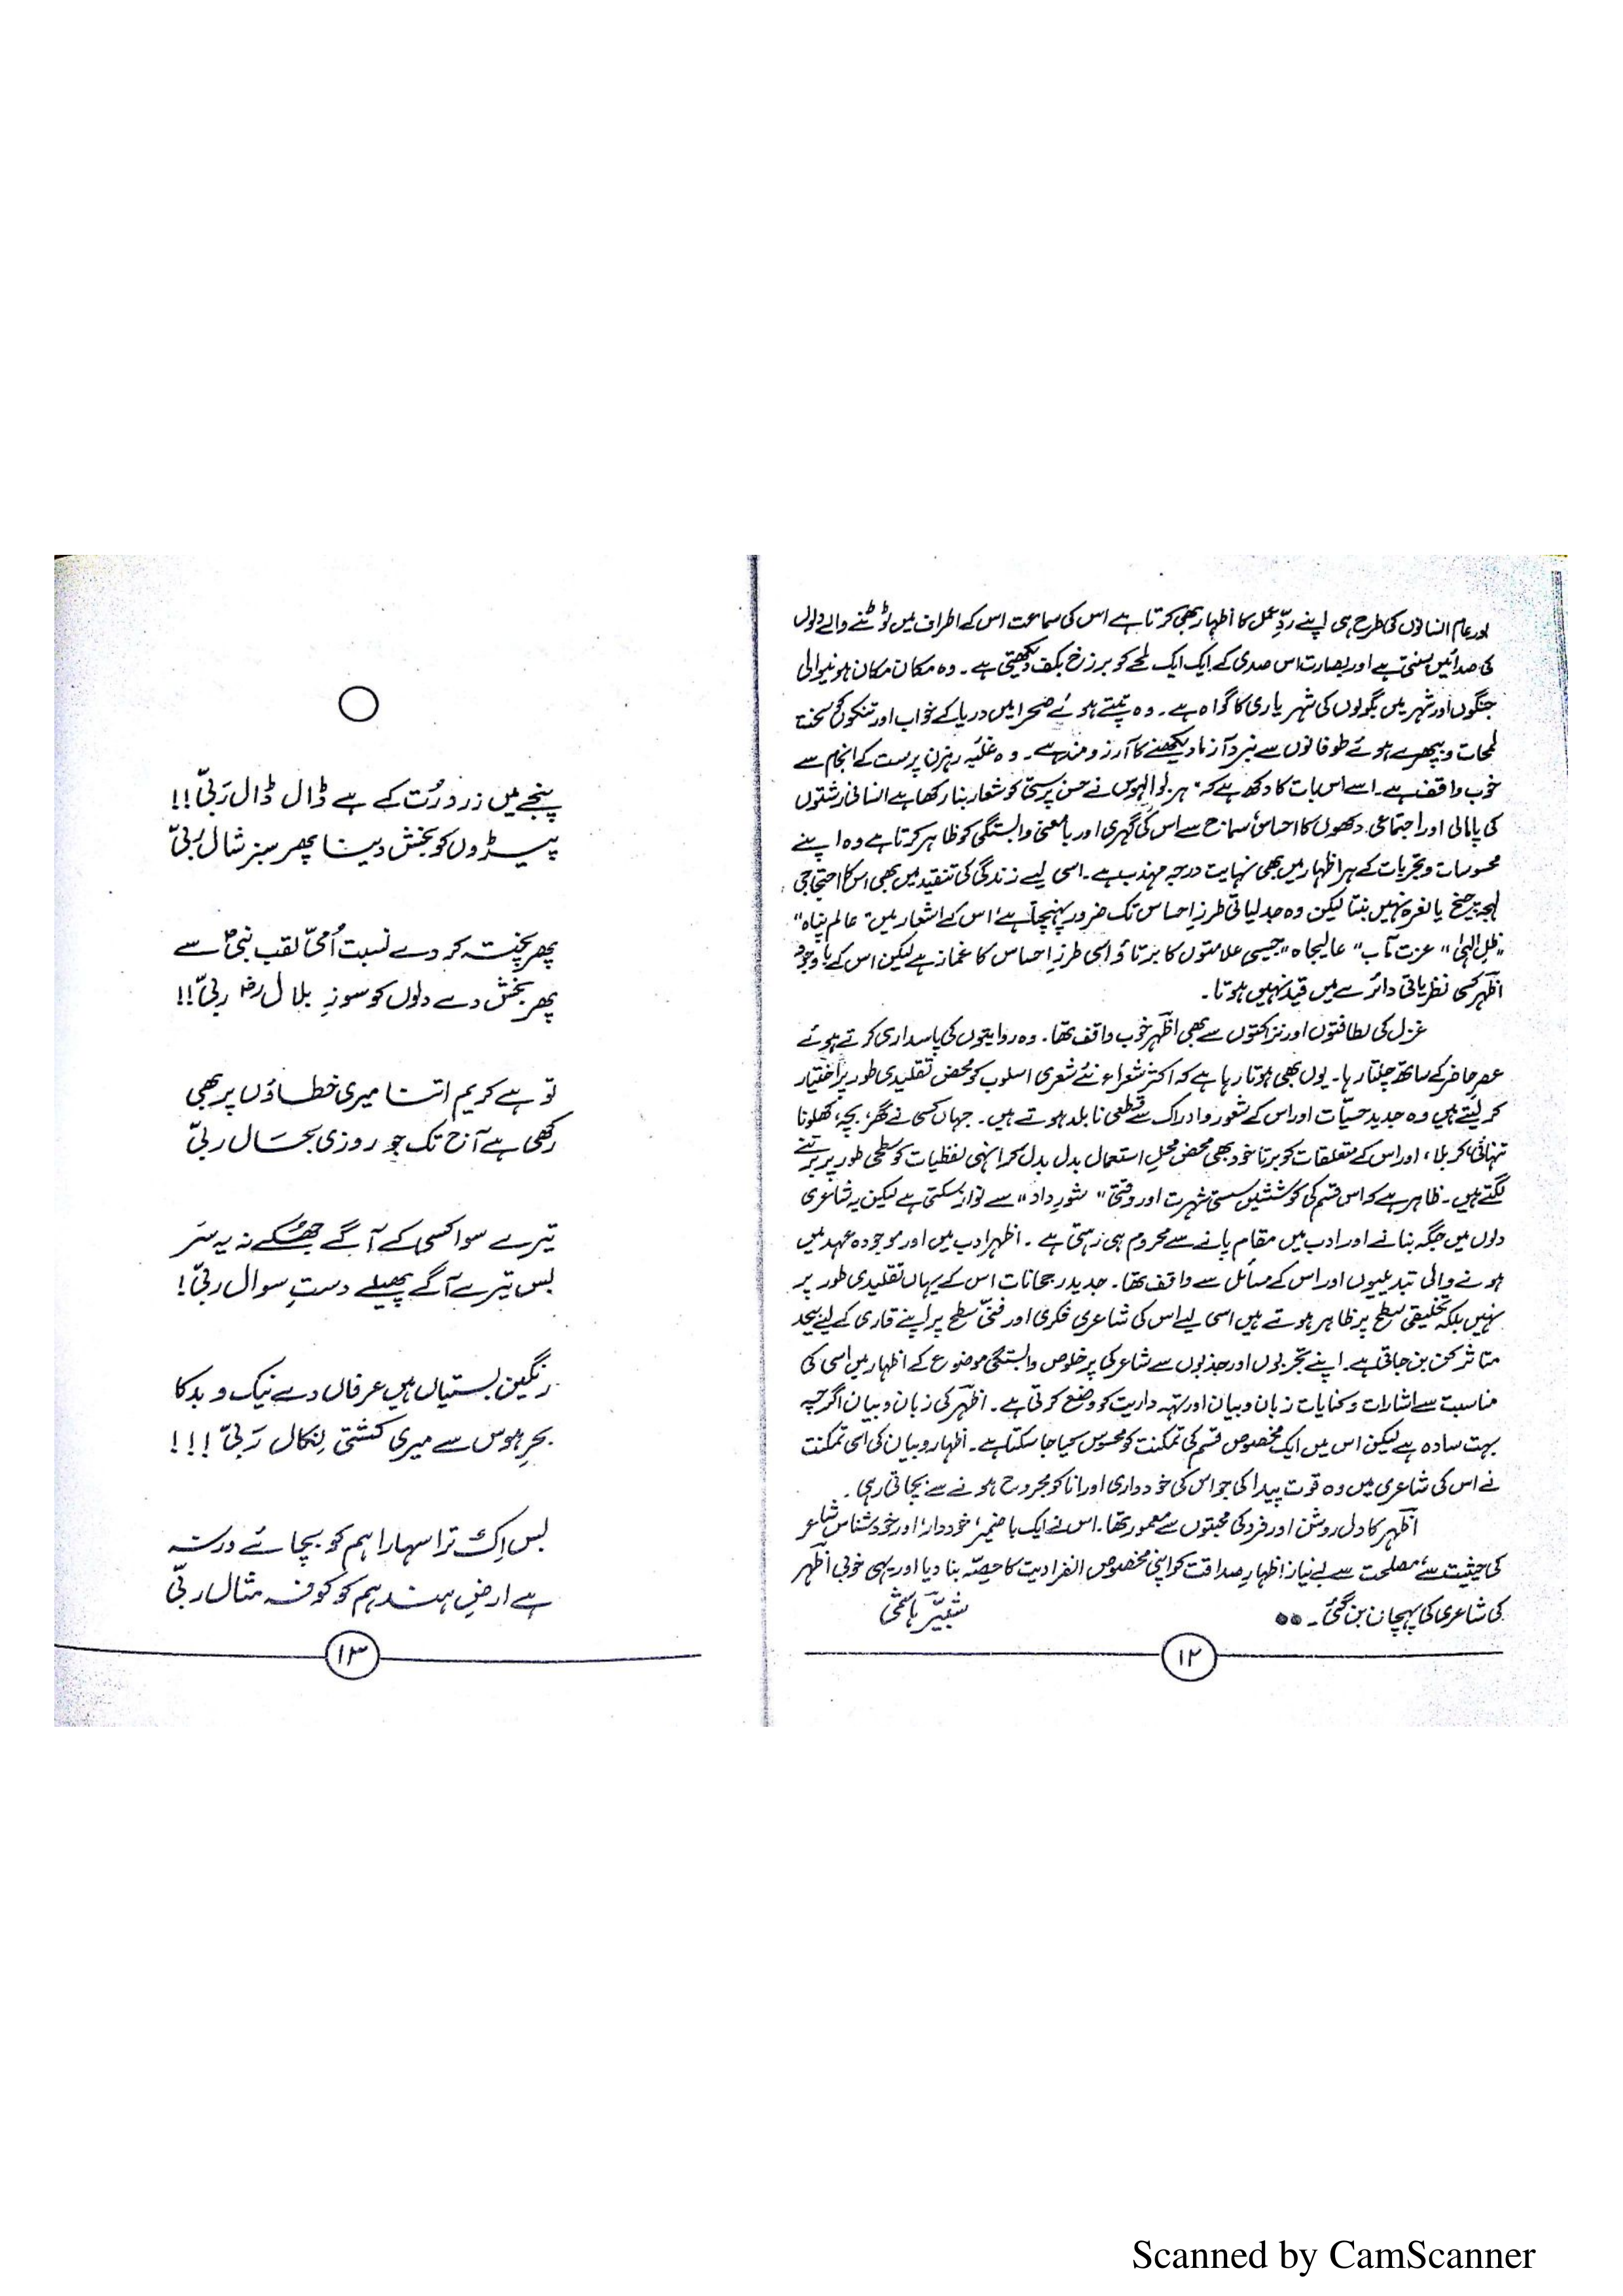 اور عام انسانوں کی طرح ہی اپنے ردِّ عمل کا اظہار بھی کرتا ہے اس کی سماعت اس کے اطراف میں ٹوٹنے والے دلوں
کی صدائیں سنتی ہے اور بصارت اس صدی کے ایک ایک لمحے کو برزخ بکف دیکھتی ہے۔ وہ مکان مکان ہونیوالی
جنگوں اور شہر میں بگولوں کی شہر یاری کا گواہ ہے۔ وہ تپتے ہوئے صحرا میں دریا کے خواب اور تنکوں کو سخت
لمحات و بپھرے ہوئے طوفانوں سے نبرد آزما دیکھنے کا آرزو مند ہے۔ وہ غلبہ رہزن پرست کے انجام سے
خوب واقف ہے۔ اسے اس بات کا دکھ ہے کہ ہر بوالہوس نے حسن پرستی کو شعار بنا رکھا ہے انسانی رشتوں
کی پامالی اور اجتماعی دکھوں کا احساس سماج سے اس کی گہری اور بامعنی وابستگی کو ظاہر کرتا ہے وہ اپنے
محسوسات و تجربات کے ہر اظہار میں بھی نہایت درجہ مہذب ہے۔ اسی لیے زندگی کی تنقید میں بھی اس کا احتجاجی
لہجہ چیخ یا نعرہ نہیں بنتا لیکن وہ جدلیاتی طرزِ احساس تک ضرور پہنچتا ہے، اس کے اشعار میں "عالم پناہ"
"ظلِ الہٰی" "عزت مآب" "عالیجاہ" جیسی علامتوں کا برتاؤ اسی طرزِ احساس کا غماز ہے لیکن اس کے باوجود
اظہر کسی نظریاتی دائرے میں قید نہیں ہوتا۔
غزل کی لطافتوں اور نزاکتوں سے بھی اظہر خوب واقف تھا۔ وہ روایتوں کی پاسداری کرتے ہوئے
عصرِ حاضر کے ساتھ چلتا رہا۔ یوں بھی ہوتا رہا ہے کہ اکثر شعراء نئے شعری اسلوب کو محض تقلیدی طور پر اختیار
کر لیتے ہیں وہ جدید حسیّات اور اس کے شعور و ادراک سے قطعی نابلد ہوتے ہیں۔ جہاں کسی نے گھر، بچہ، کھلونا
تنہائی، کربلا، اور اس کے متعلقات کو برتا خود بھی محض محلِ استعمال بدل بدل کر انہی لفظیات کو سطحی طور پر برتنے
لگتے ہیں۔ ظاہر ہے کہ اس قسم کی کوششیں سستی شہرت اور وقتی "شورِ داد" سے نواز سکتی ہے لیکن یہ شاعری
دلوں میں جگہ بنانے اور ادب میں مقام پانے سے محروم ہی رہتی ہے۔ اظہر ادب میں اور موجودہ عہد میں
ہونے والی تبدیلیوں اور اس کے مسائل سے واقف تھا۔ جدید رجحانات اس کے یہاں تقلیدی طور پر
نہیں بلکہ تخلیقی سطح پر ظاہر ہوتے ہیں اسی لیے اس کی شاعری فکری اور فنّی سطح پر اپنے قاری کے لیے بیحد
متاثر کن بن جاتی ہے۔ اپنے تجربوں اور جذبوں سے شاعر کی پرخلوص وابستگی موضوع کے اظہار میں اسی کی
مناسبت سے اشارات و کنایات زبان و بیان اور تہہ داریت کو وضع کرتی ہے۔ اظہر کی زبان و بیان اگرچہ
بہت سادہ ہے لیکن اس میں ایک مخصوص قسم کی تمکنت کو محسوس کیا جا سکتا ہے۔ اظہار و بیان کی اسی تمکنت
نے اس کی شاعری میں وہ قوت پیدا کی جو اس کی خود داری اور انا کو مجروح ہونے سے بچاتی رہی۔
اظہر کا دل روشن اور فرد کی محبتوں سے معمور تھا۔ اس نے ایک باضمیر، خوددار، اور خود شناس شاعر
کی حیثیت سے، مصلحت سے بے نیاز، اظہارِ صداقت کو اپنی مخصوص انفرادیت کا حصّہ بنا دیا اور یہی خوبی اظہر
کی شاعری کی پہچان بن گئی۔ ●● شبیر ہاشمی
۱۲
پنجے میں زرد رُت کے ہے ڈال ڈال رَبّی!!
پیڑوں کو بخش دینا پھر سبز شال ربّی
پھر پختہ کر دے نسبت اُمّی لقب نبیؐ سے
پھر بخش دے دلوں کو سوزِ بلالؓ ربّی!!
تو ہے کریم اتنا میری خطاؤں پر بھی
رکھی ہے آج تک جو روزی بحال ربّی
تیرے سوا کسی کے آگے جھکے نہ یہ سَر
بس تیرے آگے پھیلے دستِ سوال ربّی!
رنگین بستیاں ہیں عرفاں دے نیک و بد کا
بحرِ ہوس سے میری کشتی نکال رَبّی!!!
بس اِک ترا سہارا ہم کو بچائے ورنہ
ہے ارضِ ہند ہم کو کوفہ مثال ربّی
۱۳
Scanned by CamScanner